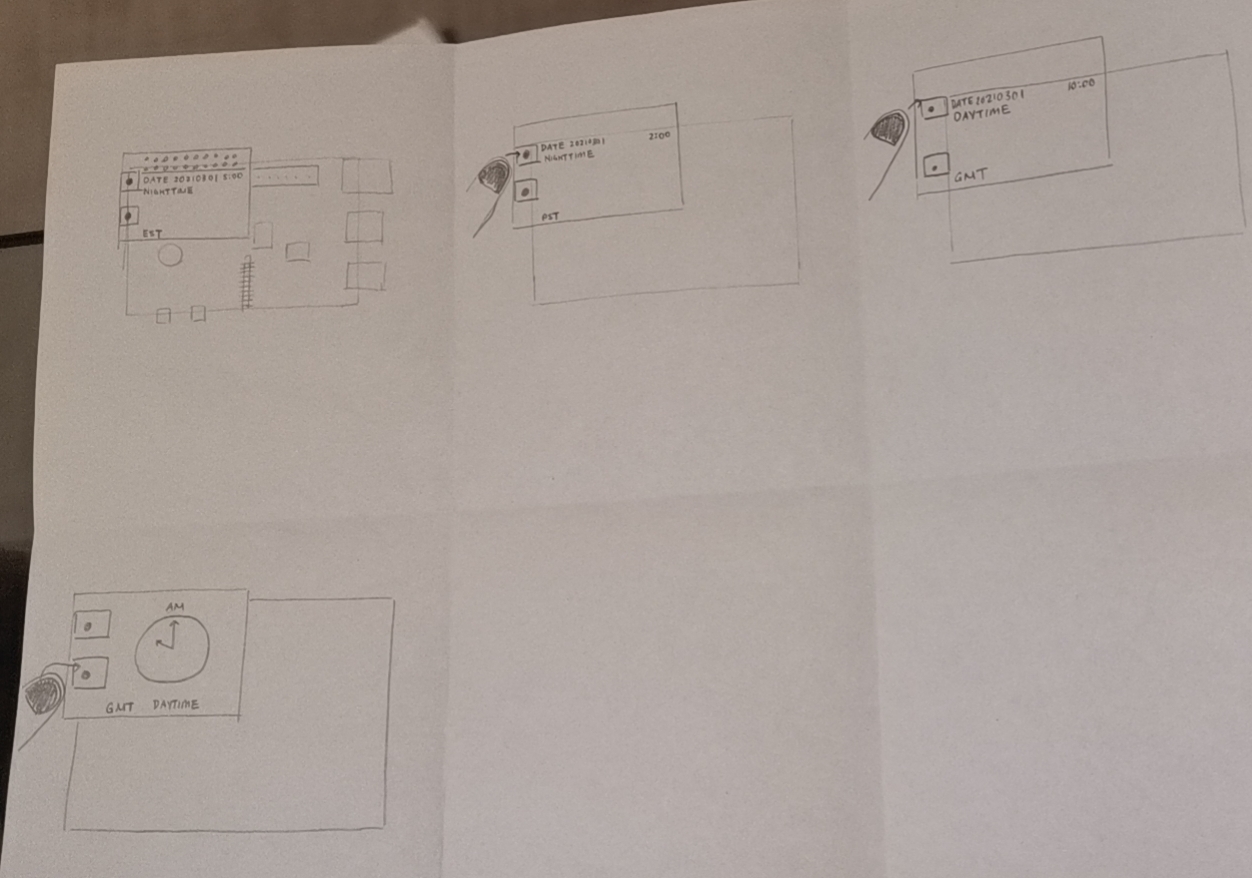 DATE 20210301 5:00
NIGHTTIME
EST
DATE 20210301 2:00
NIGHTTIME
PST
DATE 20210301 10:00
DAYTIME
GMT
AM
GMT DAYTIME